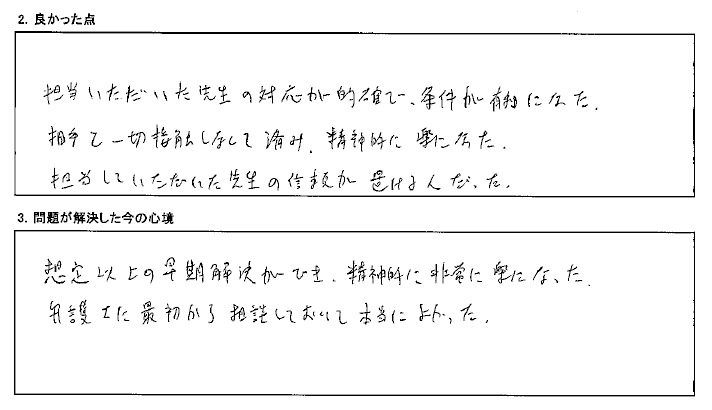 2. 良かった点
担当いただいた先生の対応が的確で、条件が有利になった。
相手と一切接触しなくて済み、精神的に楽になった。
担当していただいた先生の信頼が置ける人だった。
3. 問題が解決した今の心境
想定以上の早期解決ができ、精神的に非常に楽になった。
弁護士に最初から相談しておいて本当によかった。